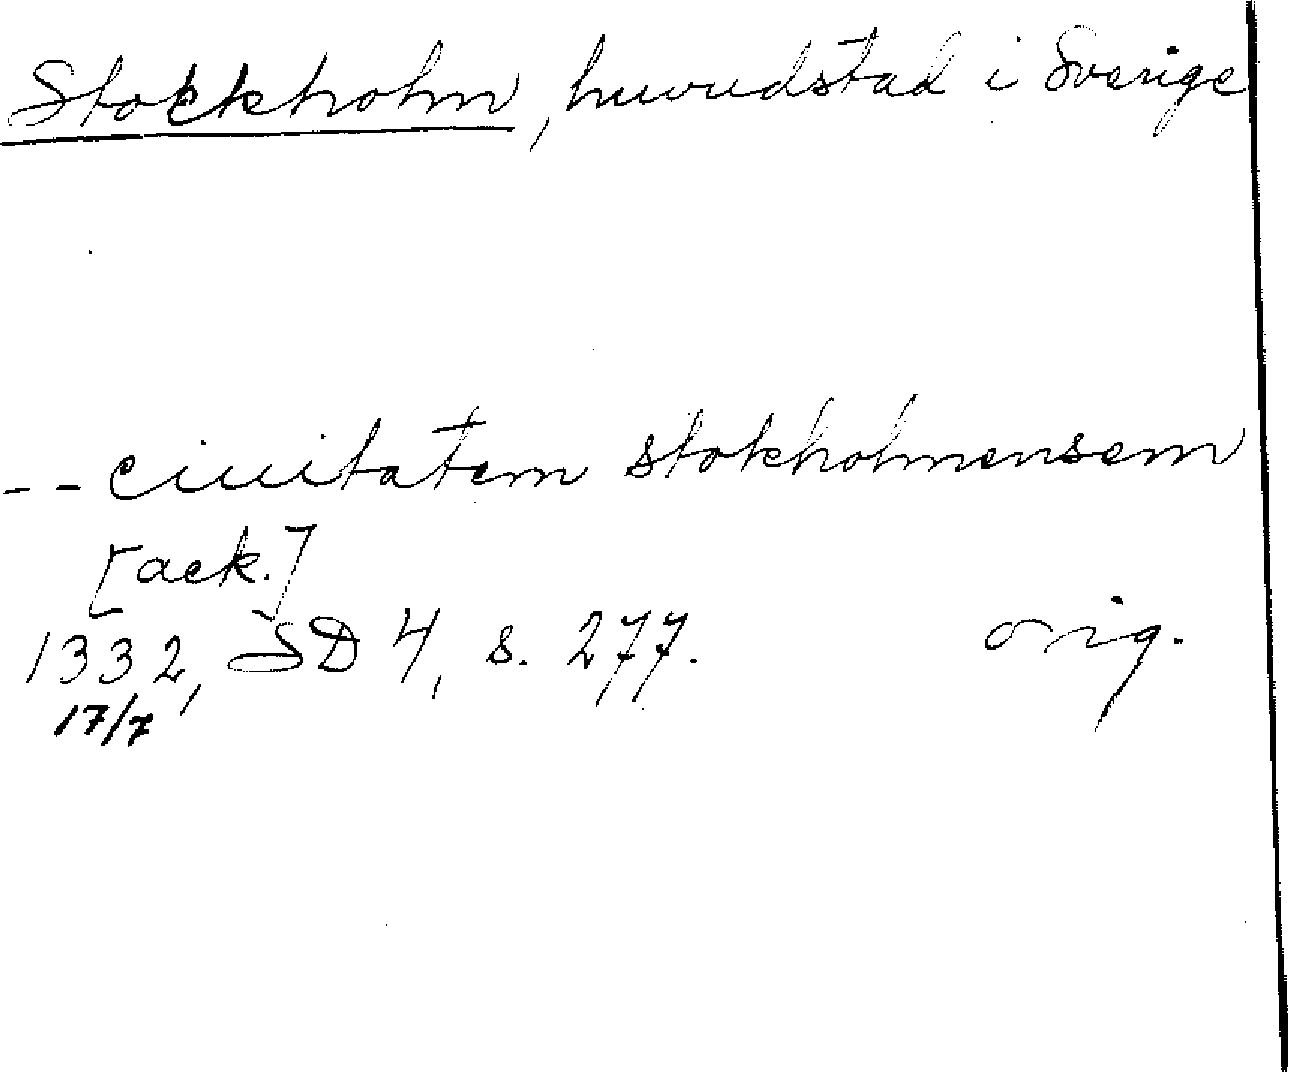 Stokkholm, huvudstad i Sverige
-- ciuitatem stokholmensem
[ack.]
1332, SD 4, s. 277. orig.
17/7